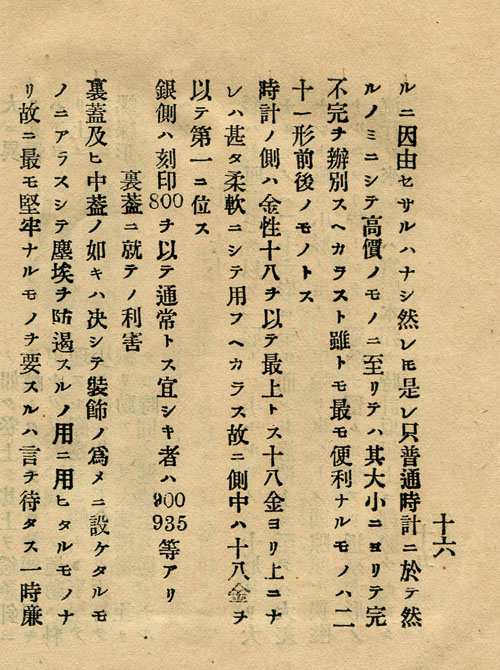 十六
ルニ因由セサルハナシ然レ𪜈是レ只普通時計ニ於テ然
ルノミニシテ高價ノモノニ至リテハ其大小ニヨリテ完
不完ヲ辨別スヘカラスト雖トモ最モ便利ナルモノハ二
十一形前後ノモノトス
時計ノ側ハ金性十八ヲ以テ最上トス十八金ヨリ上ニナ
レハ甚タ柔軟ニシテ用フヘカラス故ニ側中ハ十八金ヲ
以テ第一ニ位ス
銀側ハ刻印800ヲ以テ通常トス宜シキ者ハ900 935等アリ
裏蓋ニ就テノ利害
裏蓋及ヒ中蓋ノ如キハ决シテ裝飾ノ爲メニ設ケタルモ
ノニアラスシテ塵埃ヲ防遏スルノ用ニ用ヒタルモノナ
リ故ニ最モ堅牢ナルモノヲ要スルハ言ヲ待タス一時廉